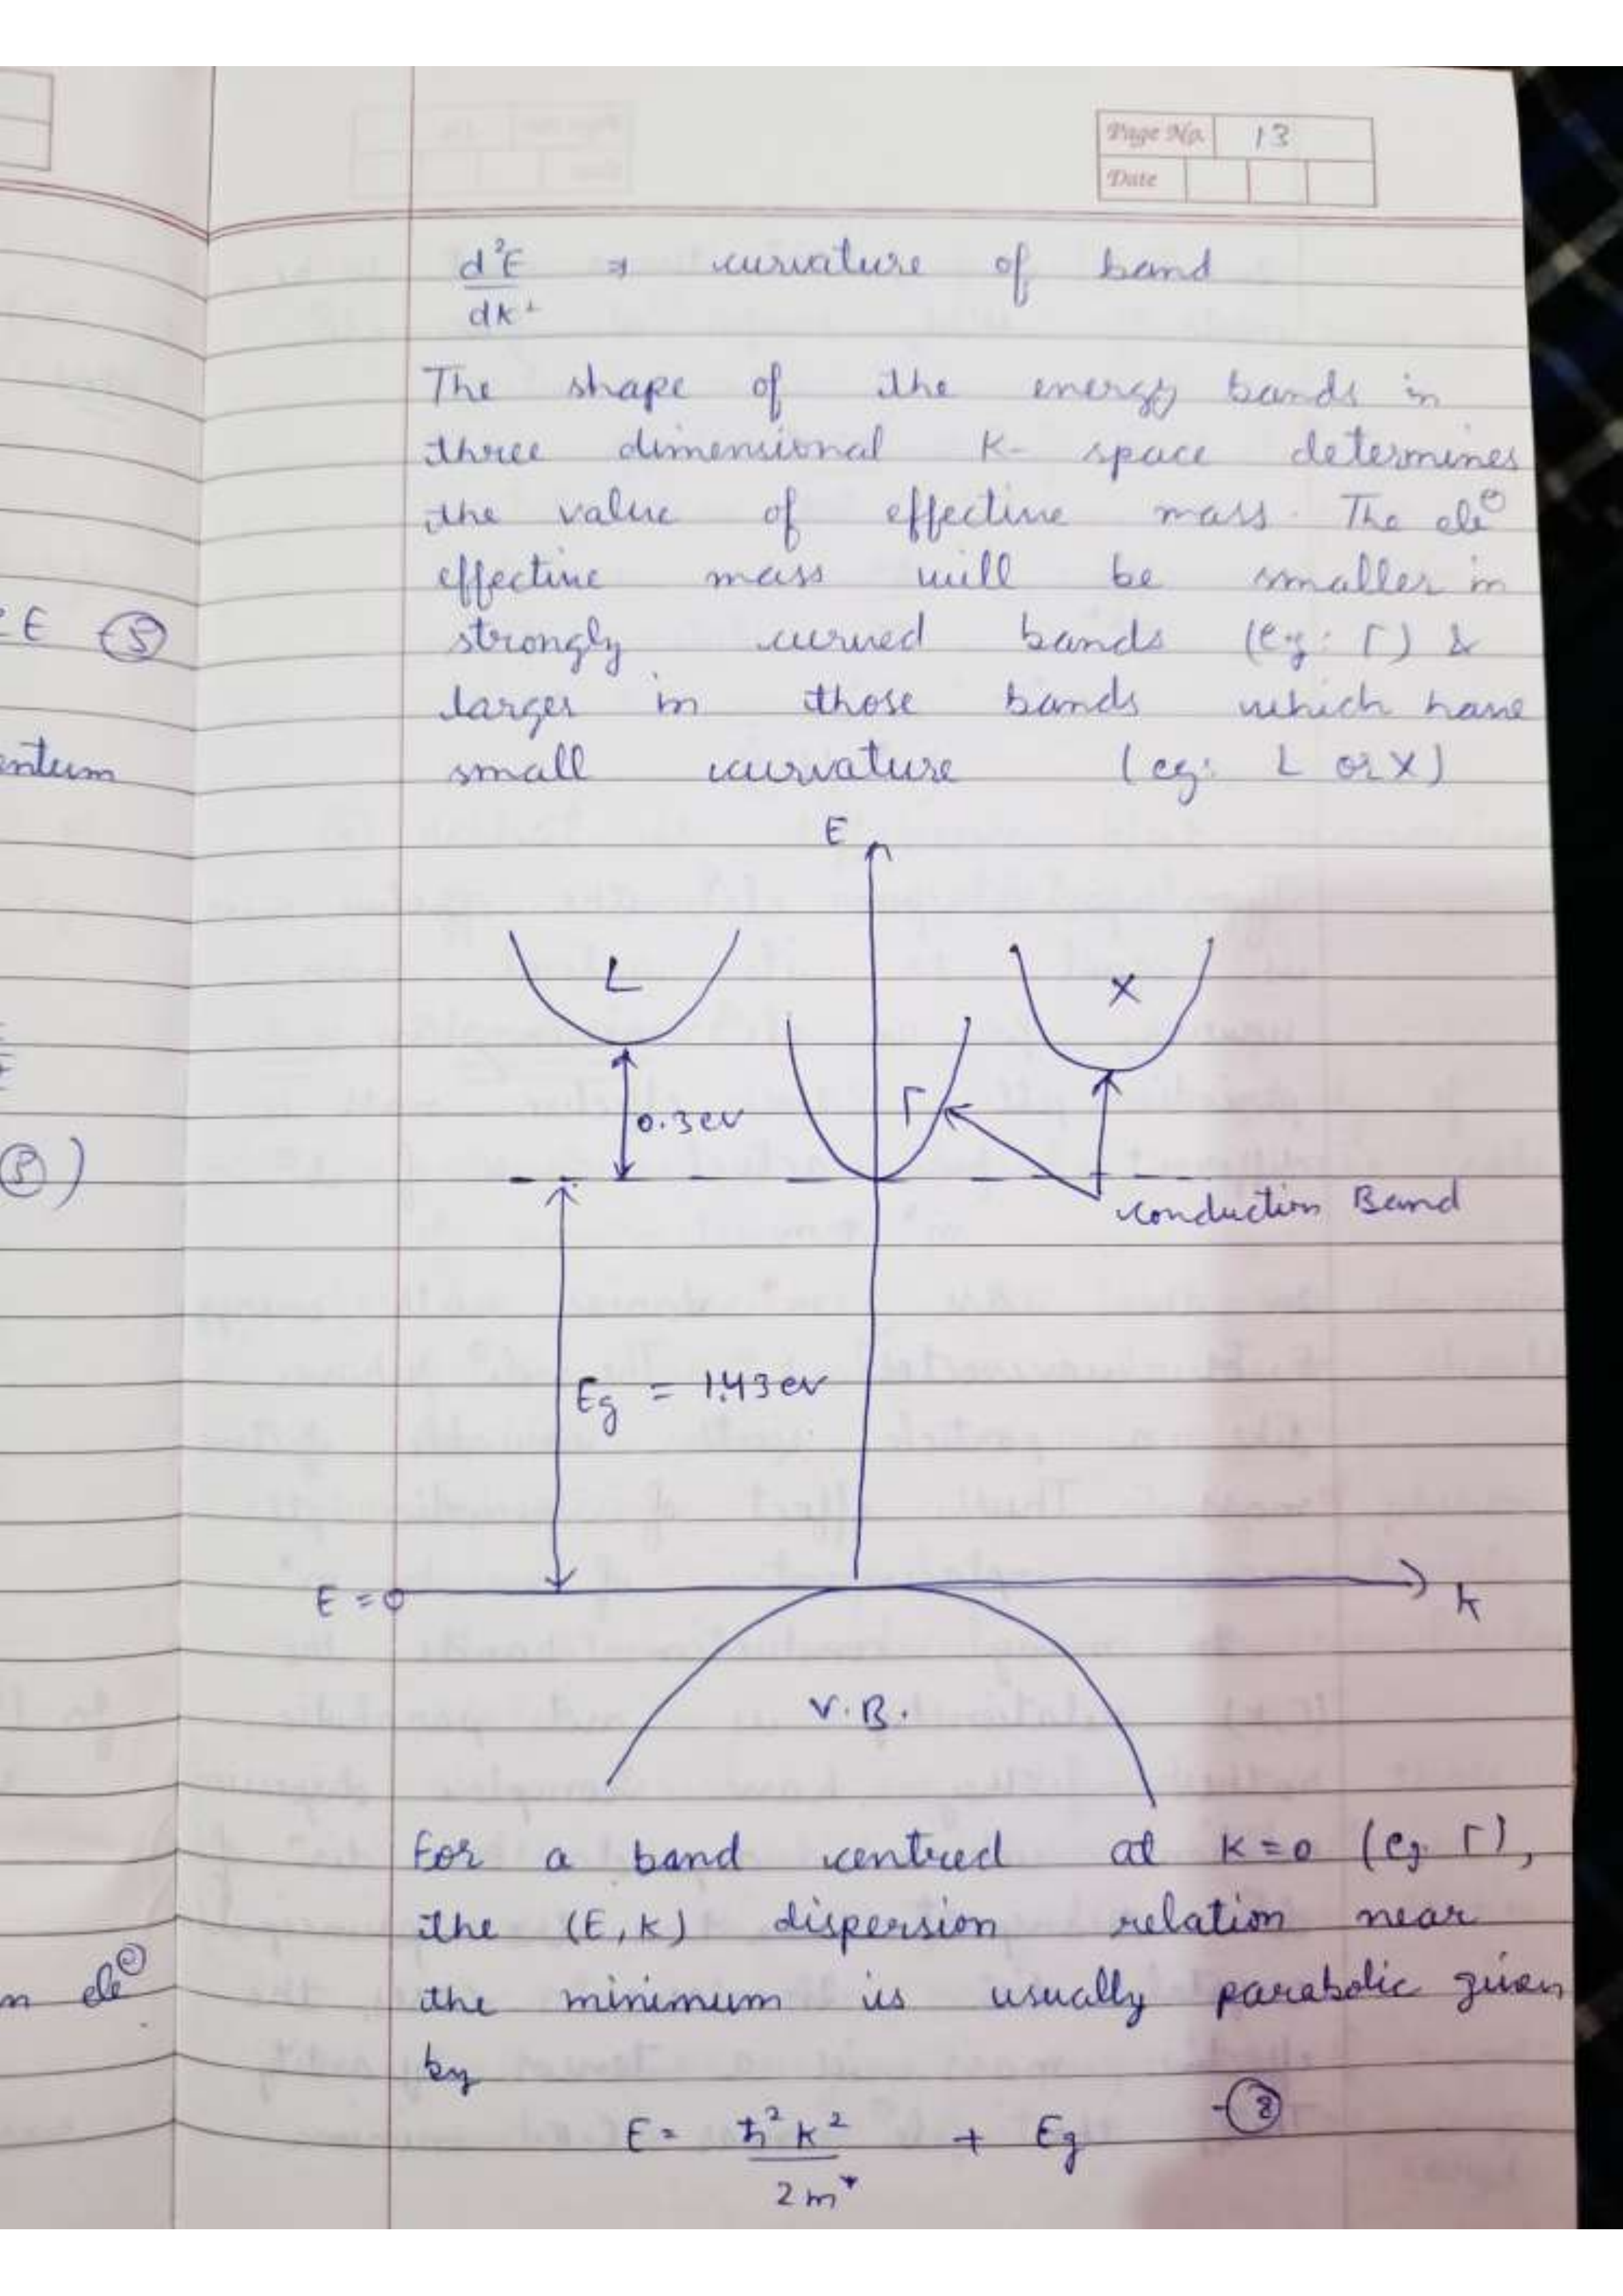 Page No. 13
Date
d²E ⇒ curvature of band
dk²
The shape of the energy bands in
three dimensional K- space determines
the value of effective mass. The ele⊖
effective mass will be smaller in
strongly curved bands (eg: Γ) &
larger in those bands which have
small curvature (eg: L or X)
E
L
X
Γ
0.3ev
Conduction Band
Eg = 1.43ev
E = 0
k
V.B.
For a band centred at K=0 (eg. Γ),
the (E,K) dispersion relation near
the minimum is usually parabolic given
by
E = ħ²k² + Eg -⑧
2m*
E ⑤
entum
⑧)
n ele⊖